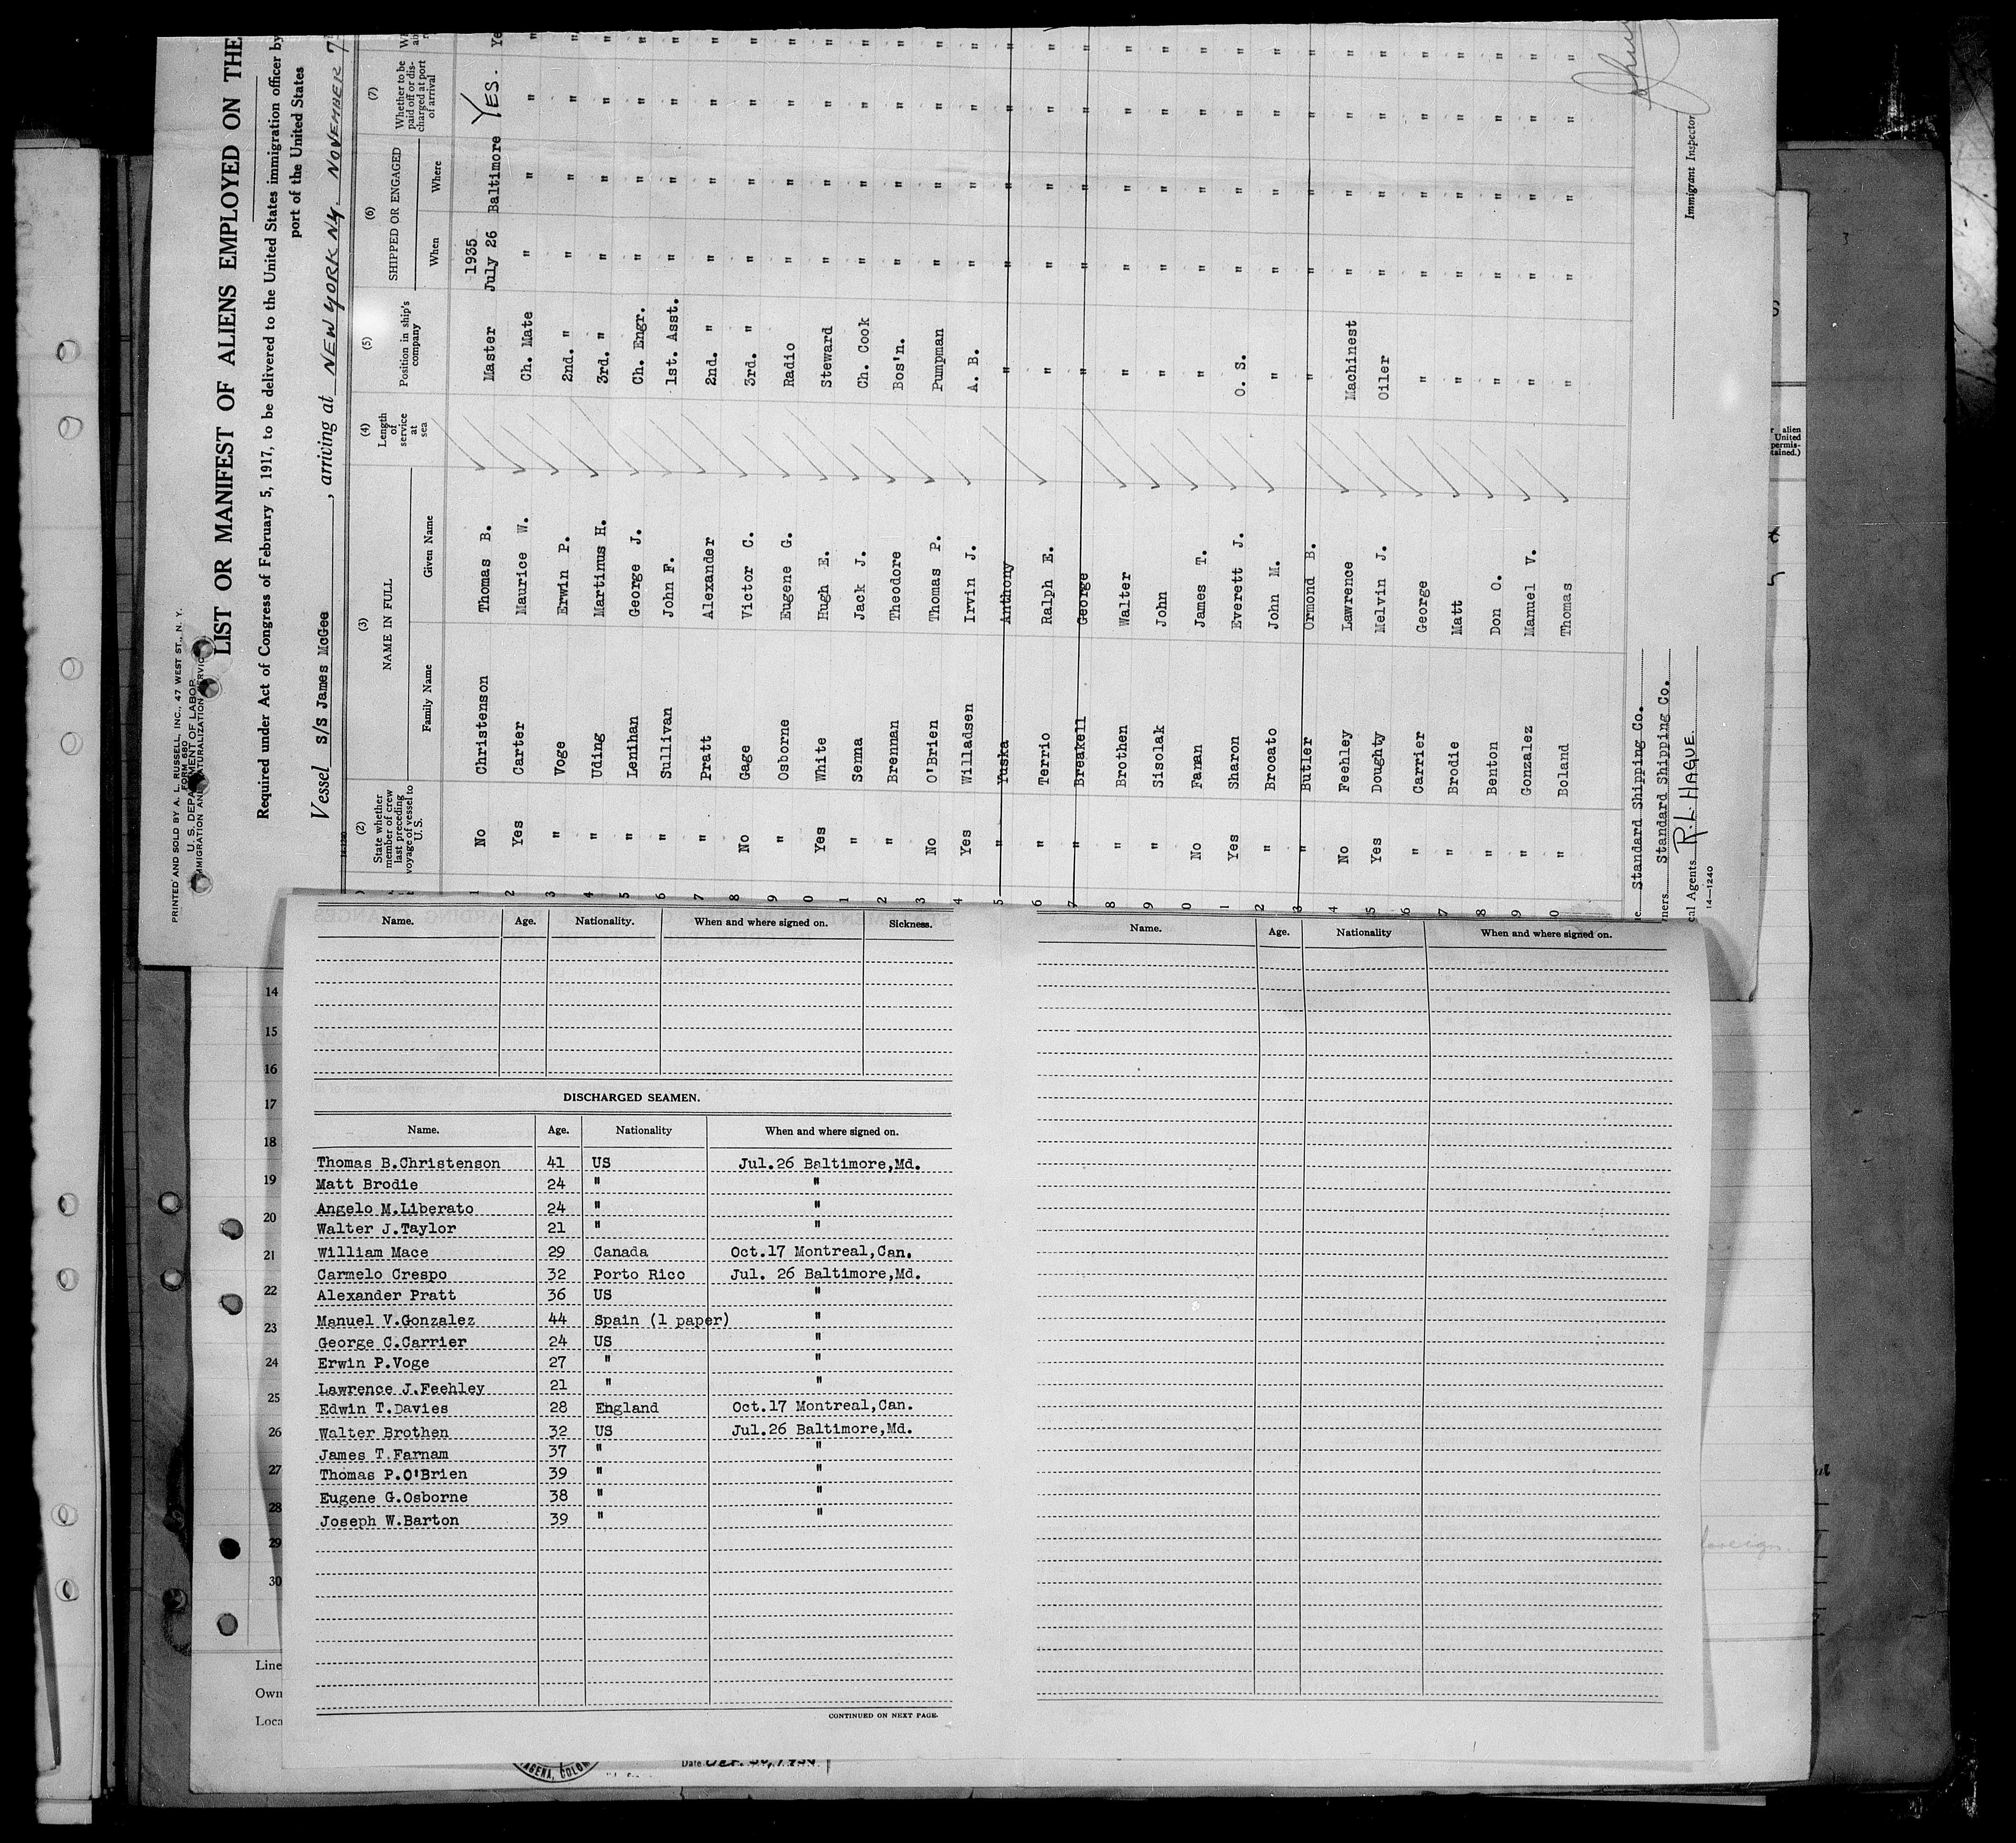 PRINTED AND SOLD BY A. L. RUSSELL, INC., 47 WEST ST., N. Y.
FORM 680
U. S. DEPARTMENT OF LABOR
IMMIGRATION AND NATURALIZATION SERVICE
LIST OR MANIFEST OF ALIENS EMPLOYED ON THE
Required under Act of Congress of February 5, 1917, to be delivered to the United States immigration officer by
port of the United States
Vessel S/S James McGee, arriving at NEW YORK NY. NOVEMBER 7
14-1240
(2) (3) (4) (5) (6) (7)
State whether member of crew last preceding voyage of vessel to U.S. NAME IN FULL Length of service at sea Position in ship's company SHIPPED OR ENGAGED Whether to be paid off or discharged at port of arrival
Family Name Given Name When Where
1935
1 No Christenson Thomas B. Master July 26 Baltimore YES. Ye
2 Yes Carter Maurice W. Ch. Mate " " " "
3 " Voge Erwin P. 2nd. " " " " "
4 " Uding Martinus H. 3rd. " " " " "
5 " Lenihan George J. Ch. Engr. " " " "
6 " Sullivan John F. 1st. Asst. " " " "
7 " Pratt Alexander 2nd. " " " " "
8 No Gage Victor C. 3rd. " " " " "
9 " Osborne Eugene G. Radio " " " "
0 Yes White Hugh E. Steward " " " "
1 " Senna Jack J. Ch. Cook " " " "
2 " Brennan Theodore Bos'n. " " " "
3 No O'Brien Thomas P. Pumpman " " " "
4 Yes Willadsen Irvin J. A. B. " " " "
5 " Yuska Anthony " " " " "
6 " Terrio Ralph E. " " " " "
7 " Breakell George " " " " "
8 " Brothen Walter " " " " "
9 " Sisolak John " " " " "
0 No Fanan James T. " " " " "
1 Yes Sharon Everett J. O. S. " " " "
2 " Brocato John M. " " " " "
3 " Butler Ormond B. " " " " "
4 No Feehley Lawrence Machinest " " " "
5 Yes Doughty Melvin J. Oiler " " " "
6 " Carrier George " " " " "
7 " Brodie Matt " " " " "
8 " Benton Don O. " " " " "
9 " Gonzalez Manuel V. " " " " "
0 " Boland Thomas " " " " "
Standard Shipping Co.
Standard Shipping Co.
Agents R.L. HAGUE.
14—1240
Immigrant Inspector
alien
United
permis-
tained.)
Name. Age. Nationality. When and where signed on. Sickness.
DISCHARGED SEAMEN.
Name. Age. Nationality When and where signed on.
Thomas B.Christenson 41 US Jul.26 Baltimore,Md.
Matt Brodie 24 " "
Angelo M.Liberato 24 " "
Walter J.Taylor 21 " "
William Mace 29 Canada Oct.17 Montreal,Can.
Carmelo Crespo 32 Porto Rico Jul. 26 Baltimore,Md.
Alexander Pratt 36 US "
Manuel V.Gonzalez 44 Spain (1 paper) "
George C.Carrier 24 US "
Erwin P.Voge 27 " "
Lawrence J.Feehley 21 " "
Edwin T.Davies 28 England Oct.17 Montreal,Can.
Walter Brothen 32 US Jul.26 Baltimore,Md.
James T.Farnam 37 " "
Thomas P.O'Brien 39 " "
Eugene G.Osborne 38 " "
Joseph W.Barton 39 " "
CONTINUED ON NEXT PAGE.
Name. Age. Nationality When and where signed on.
14
15
16
17
18
19
20
21
22
23
24
25
26
27
28
29
30
Line
Own
Loca
Date
foreign.